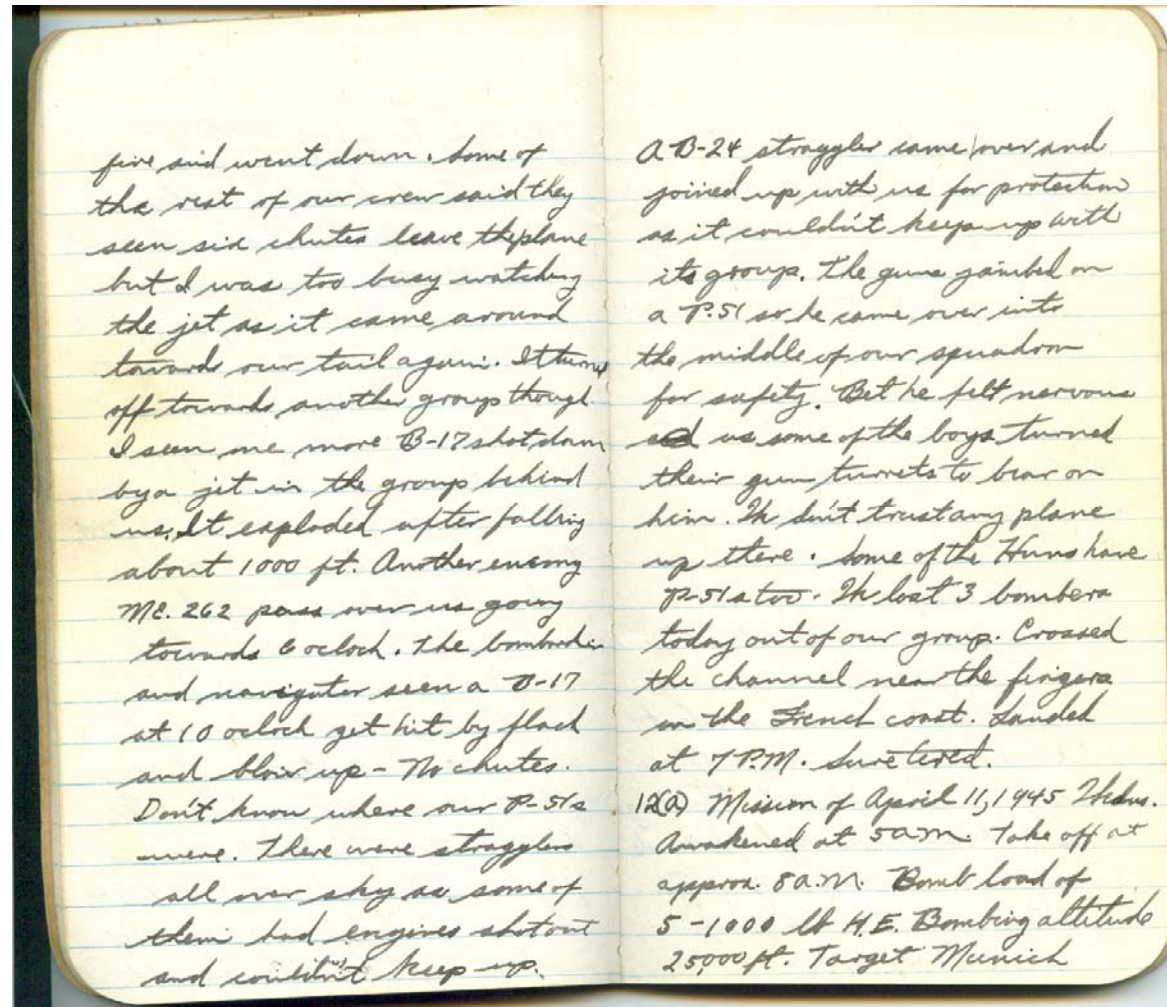 fire and went down. Some of
the rest of our crew said they
seen six chutes leave the plane
but I was too busy watching
the jet as it came around
towards our tail again. It turned
off towards another group though.
I seen one more B-17 shot down
by a jet in the group behind
us. It exploded after falling
about 1000 ft. Another enemy
ME. 262 pass over us going
towards 6 oclock. The bombardier
and navigator seen a B-17
at 10 oclock get hit by flack
and blow up - No chutes.
Don't know where our P-51s
were. There were stragglers
all over sky as some of
them had engines shot out
and couldn't keep up.
A B-24 straggler came over and
joined up with us for protection
as it couldn't keep up with
its group. The guns jambed on
a P.51 so he came over into
the middle of our squadron
for safety. Bet he felt nervous
as some of the boys turned
their gun turrets to bear on
him. We don't trust any plane
up there. Some of the Huns have
P-51s too. We lost 3 bombers
today out of our group. Crossed
the channel near the fingers
in the French coast. Landed
at 7 P.M. Sure tired.
12(a) Mission of April 11, 1945 Wedns.
Awakened at 5 a.m. Take off at
approx. 8 a.m. Bomb load of
5-1000 lb H.E. Bombing altitude
25,000 ft. Target Munich